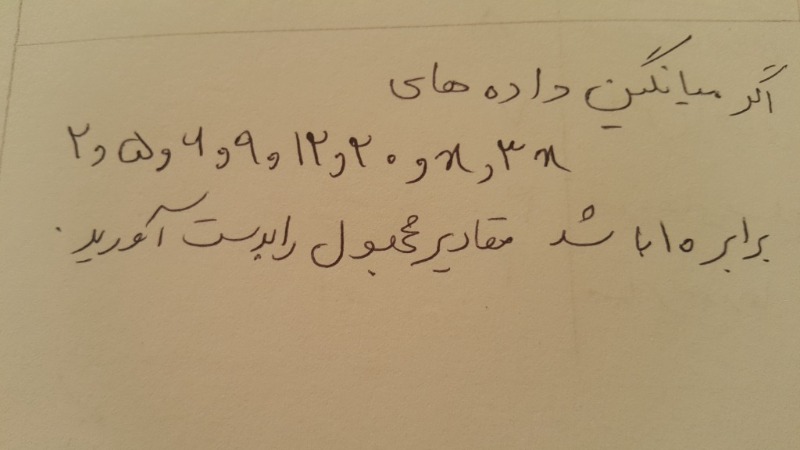 اگر میانگین داده های
۲ و ۵ و ۶ و ۹ و ۱۲ و ۲۰ و x و ۳x
برابر ۱۰ باشد مقادیر مجهول را بدست آورید.